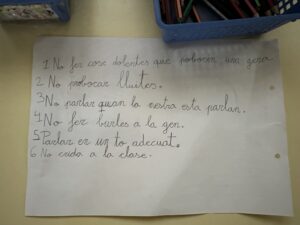 1 No fer cose dolentes que probocin una gera.
2 No probocar lluites.
3 No parlar quan la mestra esta parlan.
4 No fer burles a la gen.
5 Parlar en un to adecuat.
6 No crida a la clase.